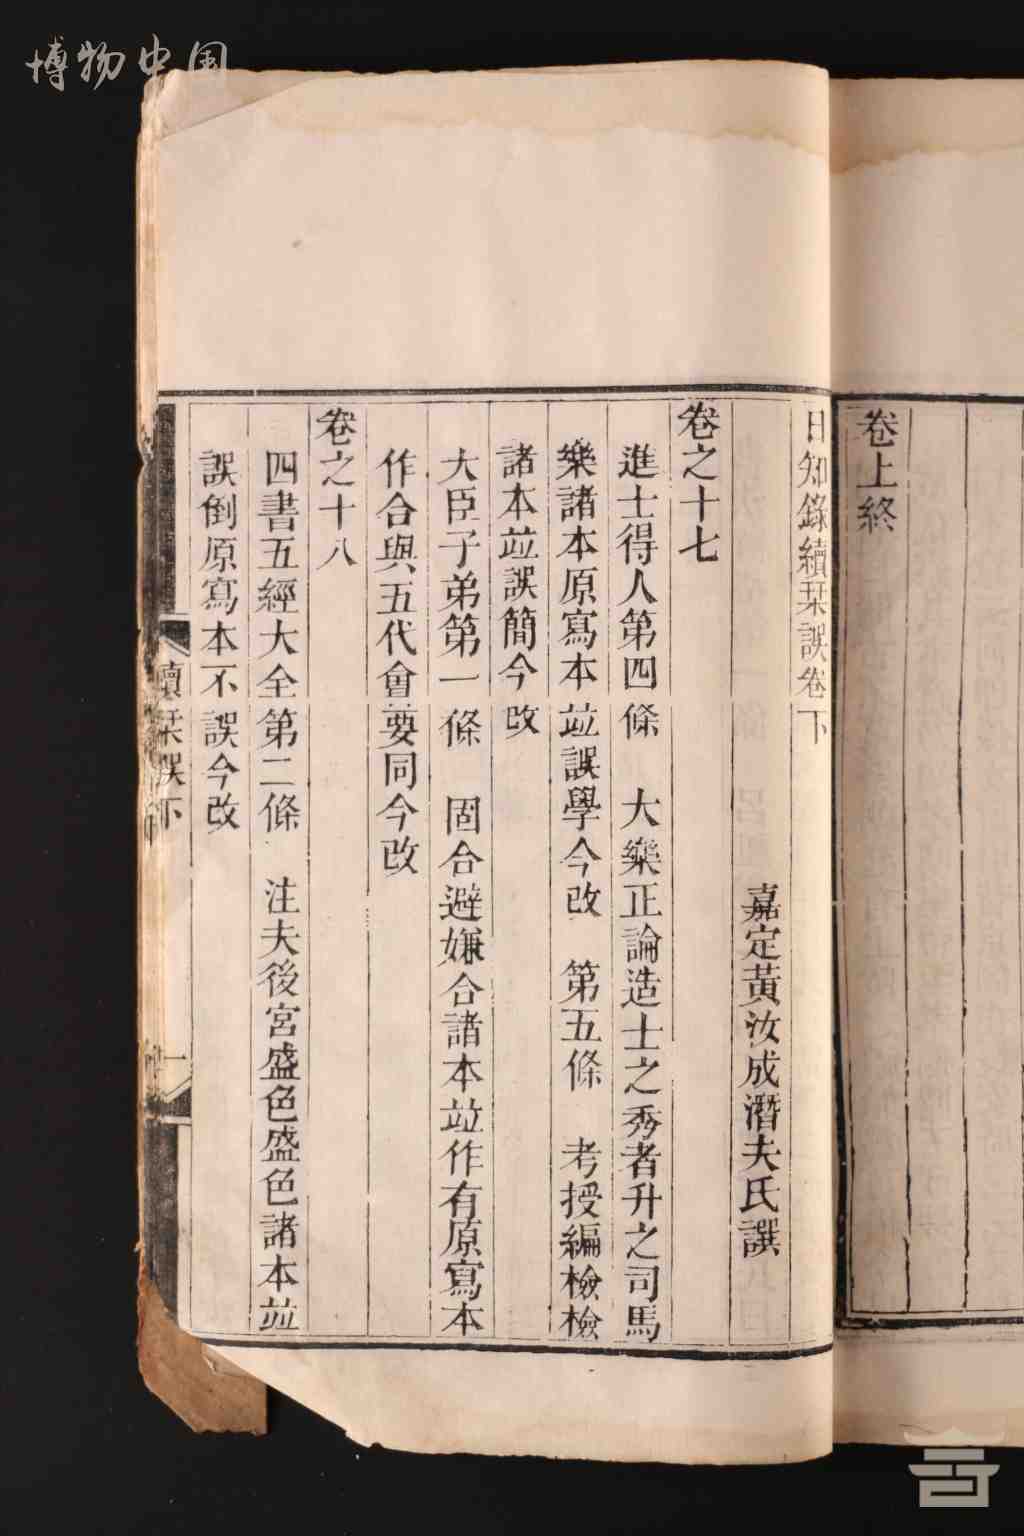 博物中国
卷上終
日知錄續栞誤卷下
嘉定黃汝成潛夫氏譔
卷之十七
進士得人第四條　大樂正論造士之秀者升之司馬
樂諸本原寫本竝誤學今改　第五條　考授編檢檢
諸本竝誤簡今改
大臣子弟第一條　固合避嫌合諸本竝作有原寫本
作合與五代會要同今改
卷之十八
四書五經大全第二條　注夫後宮盛色盛色諸本竝
誤倒原寫本不誤今改
續栞誤下
一